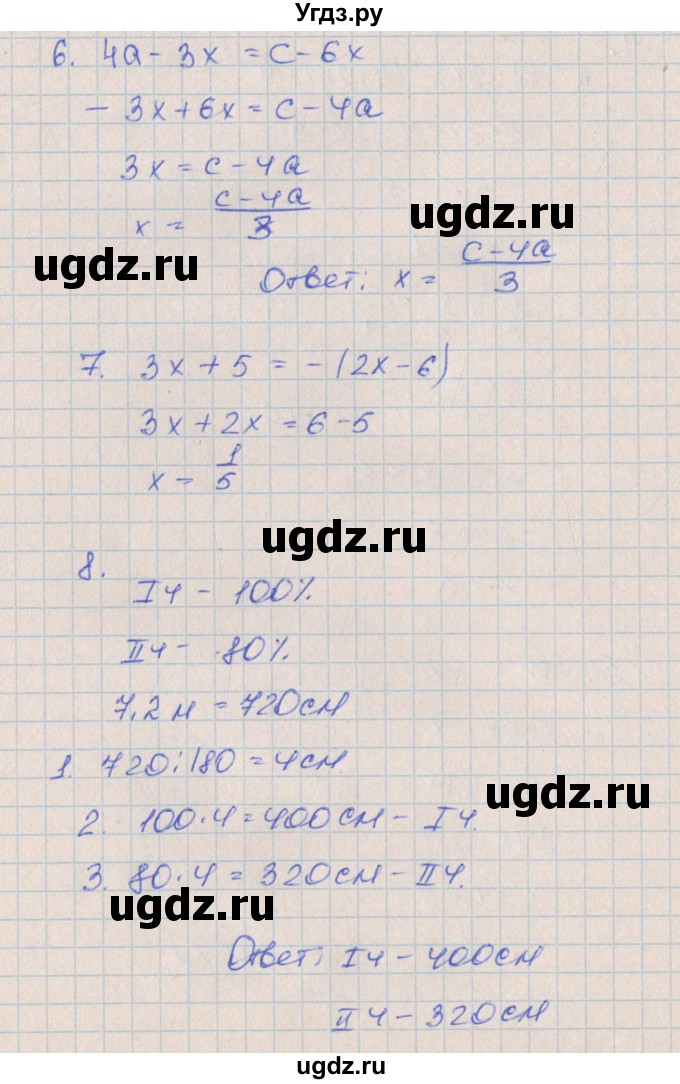 Угдз.ру
6. 4a - 3x = c - 6x
- 3x + 6x = c - 4a
3x = c - 4a
x = (c - 4a)/3
ugdz.ru
ugdz.ru
Ответ: x = (c - 4a)/3
7. 3x + 5 = -(2x - 6)
3x + 2x = 6 - 5
x = 1/5
ugdz.ru
8.
Iч - 100%
IIч - 80%
7,2 м = 720 см
1. 720 : 180 = 4 см
ugdz.ru
2. 100 · 4 = 400 см - I ч.
3. 80 · 4 = 320 см - II ч.
ugdz.ru
Ответ: I ч - 400 см
II ч - 320 см
ugdz.ru